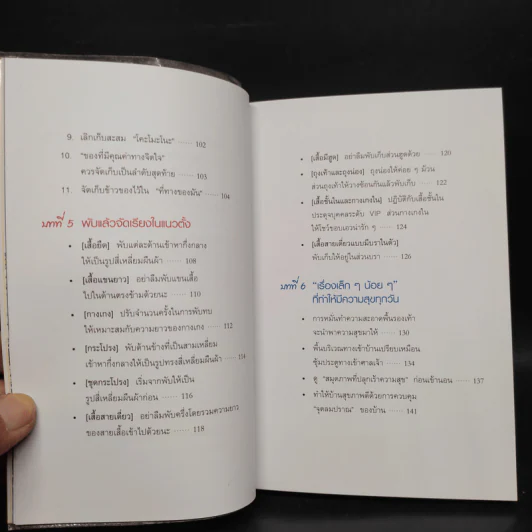 9. เลิกเก็บสะสม "โคะโมะโนะ" ······ 102
10. "ของที่มีคุณค่าทางจิตใจ"
ควรจัดเก็บเป็นลำดับสุดท้าย ······ 103
11. จัดเก็บข้าวของไว้ใน "ที่ทางของมัน" ······ 104
บทที่ 5 พับแล้วจัดเรียงในแนวตั้ง
• [เสื้อยืด] พับแต่ละด้านเข้าหากึ่งกลาง
ให้เป็นรูปสี่เหลี่ยมผืนผ้า ······ 108
• [เสื้อแขนยาว] อย่าลืมพับแขนเสื้อ
ไปในด้านตรงข้ามด้วยนะ ······ 110
• [กางเกง] ปรับจำนวนครั้งในการพับทบ
ให้เหมาะสมกับความยาวของกางเกง ······ 112
• [กระโปรง] พับด้านข้างที่เป็นสามเหลี่ยม
เข้าหากึ่งกลางให้เป็นรูปทรงสี่เหลี่ยมผืนผ้า ······ 114
• [ชุดกระโปรง] เริ่มจากพับให้เป็น
รูปสี่เหลี่ยมผืนผ้าก่อน ······ 116
• [เสื้อสายเดี่ยว] อย่าลืมพับครึ่งโดยรวมความยาว
ของสายเสื้อเข้าไปด้วยนะ ······ 118
• [เสื้อมีฮูด] อย่าลืมพับเก็บส่วนฮูดด้วย ······ 120
• [ถุงเท้าและถุงน่อง] ถุงน่องให้ค่อย ๆ ม้วน
ส่วนถุงเท้าให้วางซ้อนกันแล้วพับเก็บ ······ 122
• [เสื้อชั้นในและกางเกงใน] ปฏิบัติกับเสื้อชั้นใน
ประดุจบุคคลระดับ VIP ส่วนกางเกงใน
ให้โชว์ขอบเอวน่ารัก ๆ ······ 124
• [เสื้อสายเดี่ยวแบบมีบราในตัว]
พับเก็บให้อยู่ในส่วนบรา ······ 126
บทที่ 6 "เรื่องเล็ก ๆ น้อย ๆ"
ที่ทำให้มีความสุขทุกวัน
• การหมั่นทำความสะอาดพื้นรองเท้า
จะนำพาความสุขมาให้ ······ 130
• พื้นบริเวณทางเข้าบ้านเปรียบเหมือน
ซุ้มประตูทางเข้าศาลเจ้า ······ 134
• ดู "สมุดภาพที่ปลุกเร้าความสุข" ก่อนเข้านอน ······ 137
• ทำให้บ้านสุขภาพดีด้วยการควบคุม
"จุดลมปราณ" ของบ้าน ······ 141